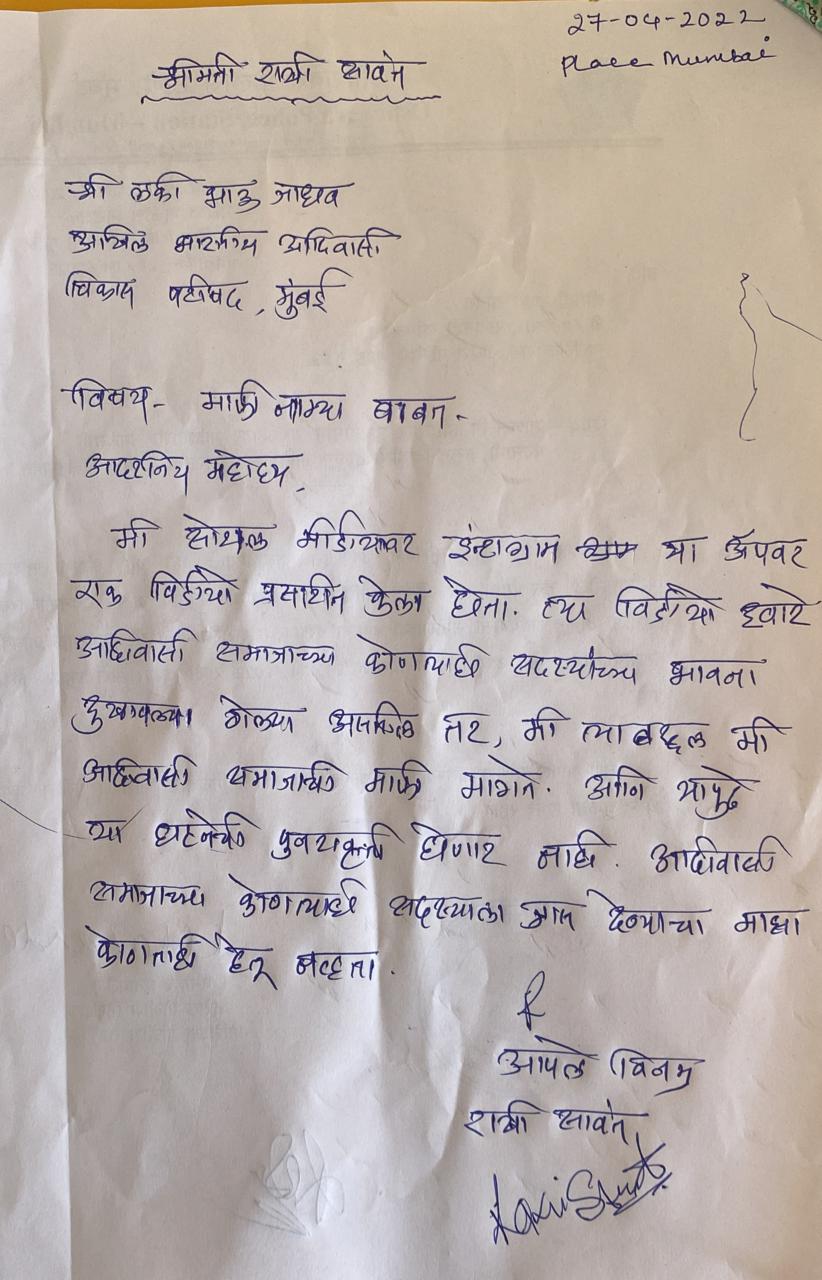 27-04-2022
Place Mumbai
श्रीमती राखी सावंत
श्री लकी भाऊ जाधव
अखिल भारतीय आदिवासी
विकास परिषद, मुंबई
विषय- माफी नाम्या बाबत-
आदरनिय महोदय,
मी सोशल मीडीयावर इंस्टाग्राम या ॲपवर
एक विडीयो प्रसारीत केला होता. त्या विडीयो द्वारे
आदिवासी समाजाच्या कोणत्याही सदस्यांच्या भावना
दुखावल्या गेल्या असतिल तर, मी त्याबद्दल मी
आदिवासी समाजाची माफी मागते. आणि यापुढे
या घटनेची पुनरावृत्ती होणार नाही. आदीवासी
समाजाच्या कोणत्याही सदस्याला त्रास देण्याचा माझा
कोणताही हेतू नव्हता.
आपले विनम्र
राखी सावंत